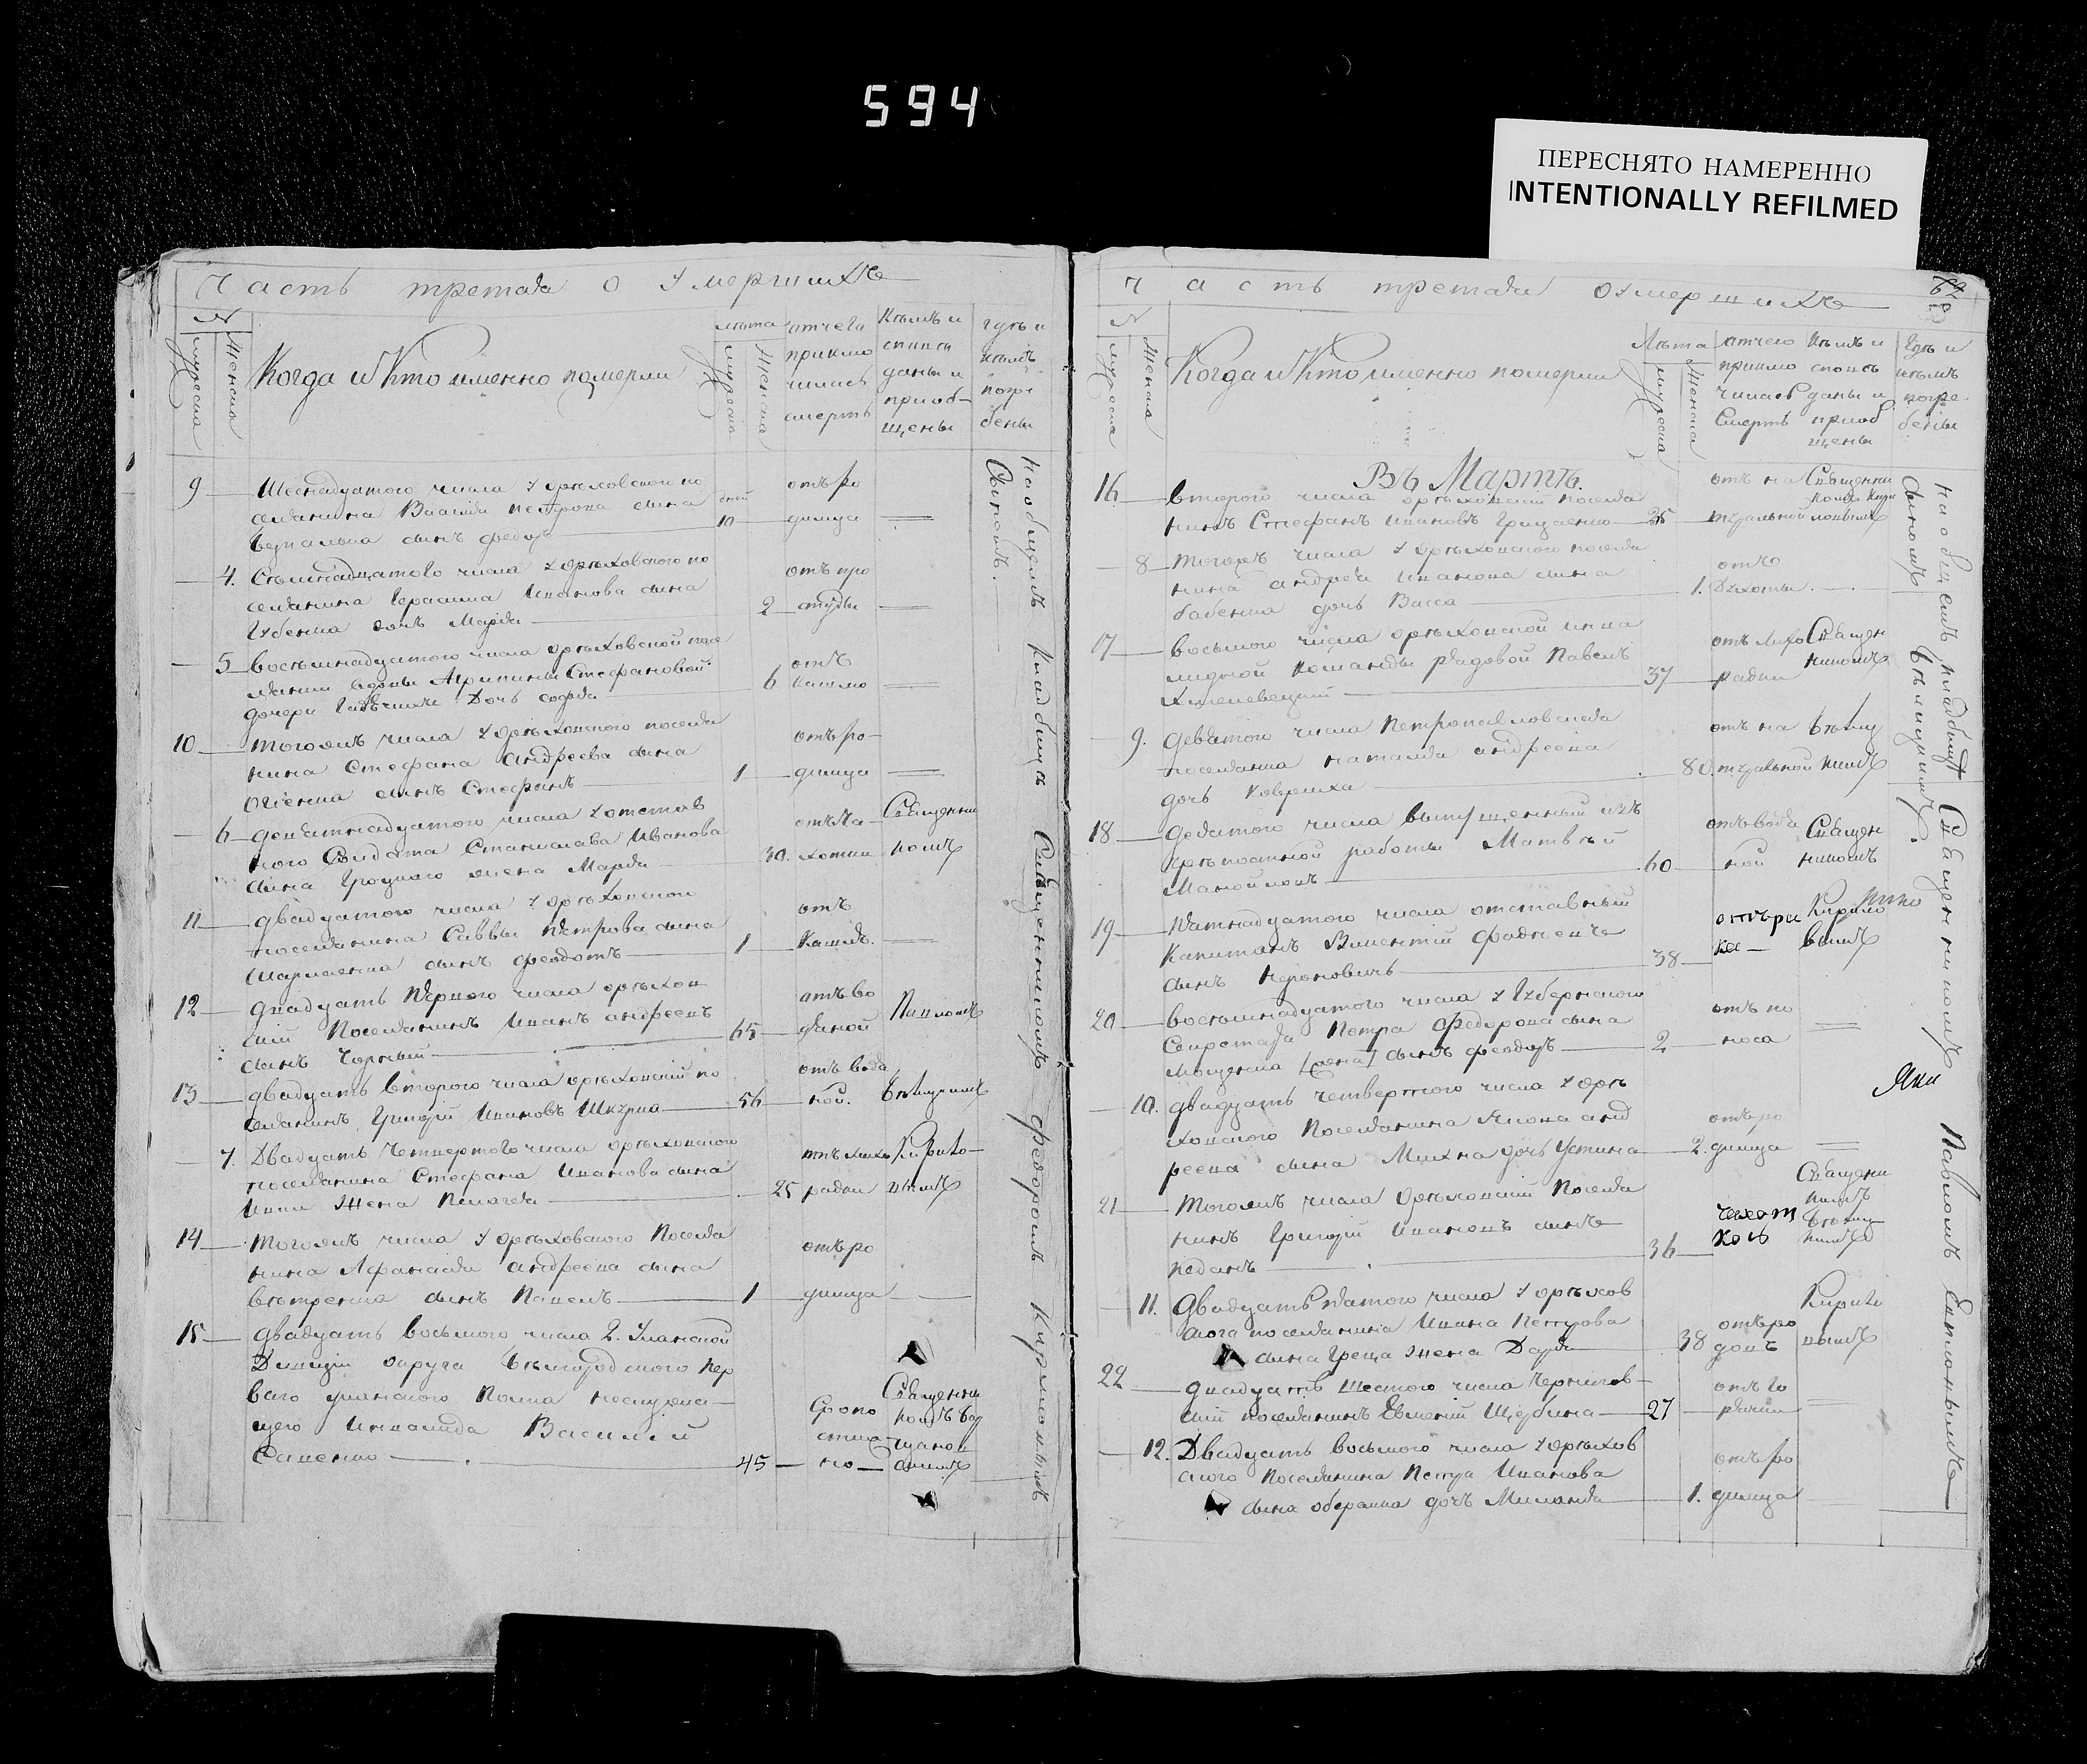 594
ПЕРЕСНЯТО НАМЕРЕННО
INTENTIONALLY REFILMED
Часть третая о умершихъ
№
Мужеска
Женска
Когда и Кто именно померли
лѣта
мужеска
Женска
отчего
приклю
чилась
смерть
Кѣмъ и
даны и
приоб-
щены
гдѣ и
кѣмъ
погре
бены
9
Шеснадцатого числа у орѣховского по
селянина Василія Петрова сына
сынъ Федоръ
дней
10
отъ ро
димца
4.
Семнадцатого числа у орѣховского по
селянина Герасима Иванова сына
Губенка дочь Марія
2
отъ про
студы
5
восемнадцатого числа орѣховской посе
лянки Агрипины Стефановой
дочери дочь Софія
6
отъ
Кашлю
10
тогожъ числа у орѣховского поселя
нина Стефана Андреева сына
Огіенка сынъ Стефанъ
1
отъ ро-
димца
6
девятнадцатого числа у отстав
ного Солдата Станислава Иванова
сына жена Марія
30.
отъ Ча-
хотки
Священни
комъ
11
двадцатого числа у орѣховского
поселянина Саввы Петрова сына
сынъ Феодотъ
1
отъ
Кашля.
12
двадцать перваго числа орѣхов
скій Поселянинъ Иванъ андреевъ
сынъ Чорный
65
отъ во
дяной
Павломъ
13
двадцать второго числа орѣховскій по
селянинъ Григорій Ивановъ Шкурка
56
отъ водя
ной.
7.
Двадцать Четвертого числа орѣховского
поселянина Стефана Иванова сына
жена Пелагея
25
отъ лихо
радки
Кирило-
вымъ
14
Тогожъ числа у орѣховского Поселя
нина Афанасія андреева сына
Вѣтренка сынъ Павелъ
1
отъ ро
димца
15
двадцать восьмого числа 2. Уланской
Дивизіи округа Бѣлгородского пер
ваго уланского Полка неслужа-
щего Инвалида Василій
Саченко
45
Скоро
стиж
но
Священни
комъ
На общемъ кладбищѣ Священникомъ Федоромъ Кириловымъ
Сыномъ.
Часть третая о умершихъ
№
Мужеска
Женска
Когда и Кто именно померли
Лѣта
мужеска
Женска
отчего
приклю
чилась
Смерть
Кѣмъ и
даны и
приоб
щены
Гдѣ и
кѣмъ
погре
бены
Въ Мартѣ.
16
второго числа орѣховскій поселя
нинъ Стефанъ Ивановъ Грицаенко
отъ на
туральной
Священни
комъ Кири
ловымъ
8
Тогожъ числа у орѣховского поселя
нина андрея Иванова сына
Бабенка дочь Васса
1.
отъ
Сухоты
17
восьмого числа орѣховской инва
лидной Команды рядовой Павелъ
Хмелевецкій
37
отъ лихо
радки
Священ
никомъ
9.
девятого числа Петропавловская
поселянка наталія андреева
дочь Ковришка
80.
отъ на
туральной
18
девятого числа выпущенный изъ
крѣпостной работы Матвѣй
Манойловъ
60
отъ водя
ной
Священ
никомъ
19
Пятнадцатого числа отставный
Капитанъ Викентій
сынъ
38
Кирило
вымъ
20
восемнадцатого числа у Губернского
Секретаря Петра Федорова сына
сынъ Феодоръ
2
отъ по
носа
10.
двадцать четвертого числа у орѣ
ховского Поселянина Якова анд
реева сына Михна дочь Устина
2.
отъ ро
димца
21
Тогожъ числа Орѣховскій Поселя
нинъ Григорій Ивановъ сынъ
36
чахот
кою
Священни
комъ
11.
двадцать пятого числа у орѣхов
ского поселянина Ивана Петрова
сына Греца жена Дарія
38
отъ ро
довъ
Кирило
вымъ
22
двадцать шестого числа Чернигов-
скій поселянинъ Евменій Щербина
27
отъ го
рячки
12.
Двадцать восьмого числа у орѣхов
ского поселянина Петра Иванова
сына дочь Миланія
1.
отъ ро
димца
На общемъ кладбищѣ Священникомъ Павломъ
сыномъ